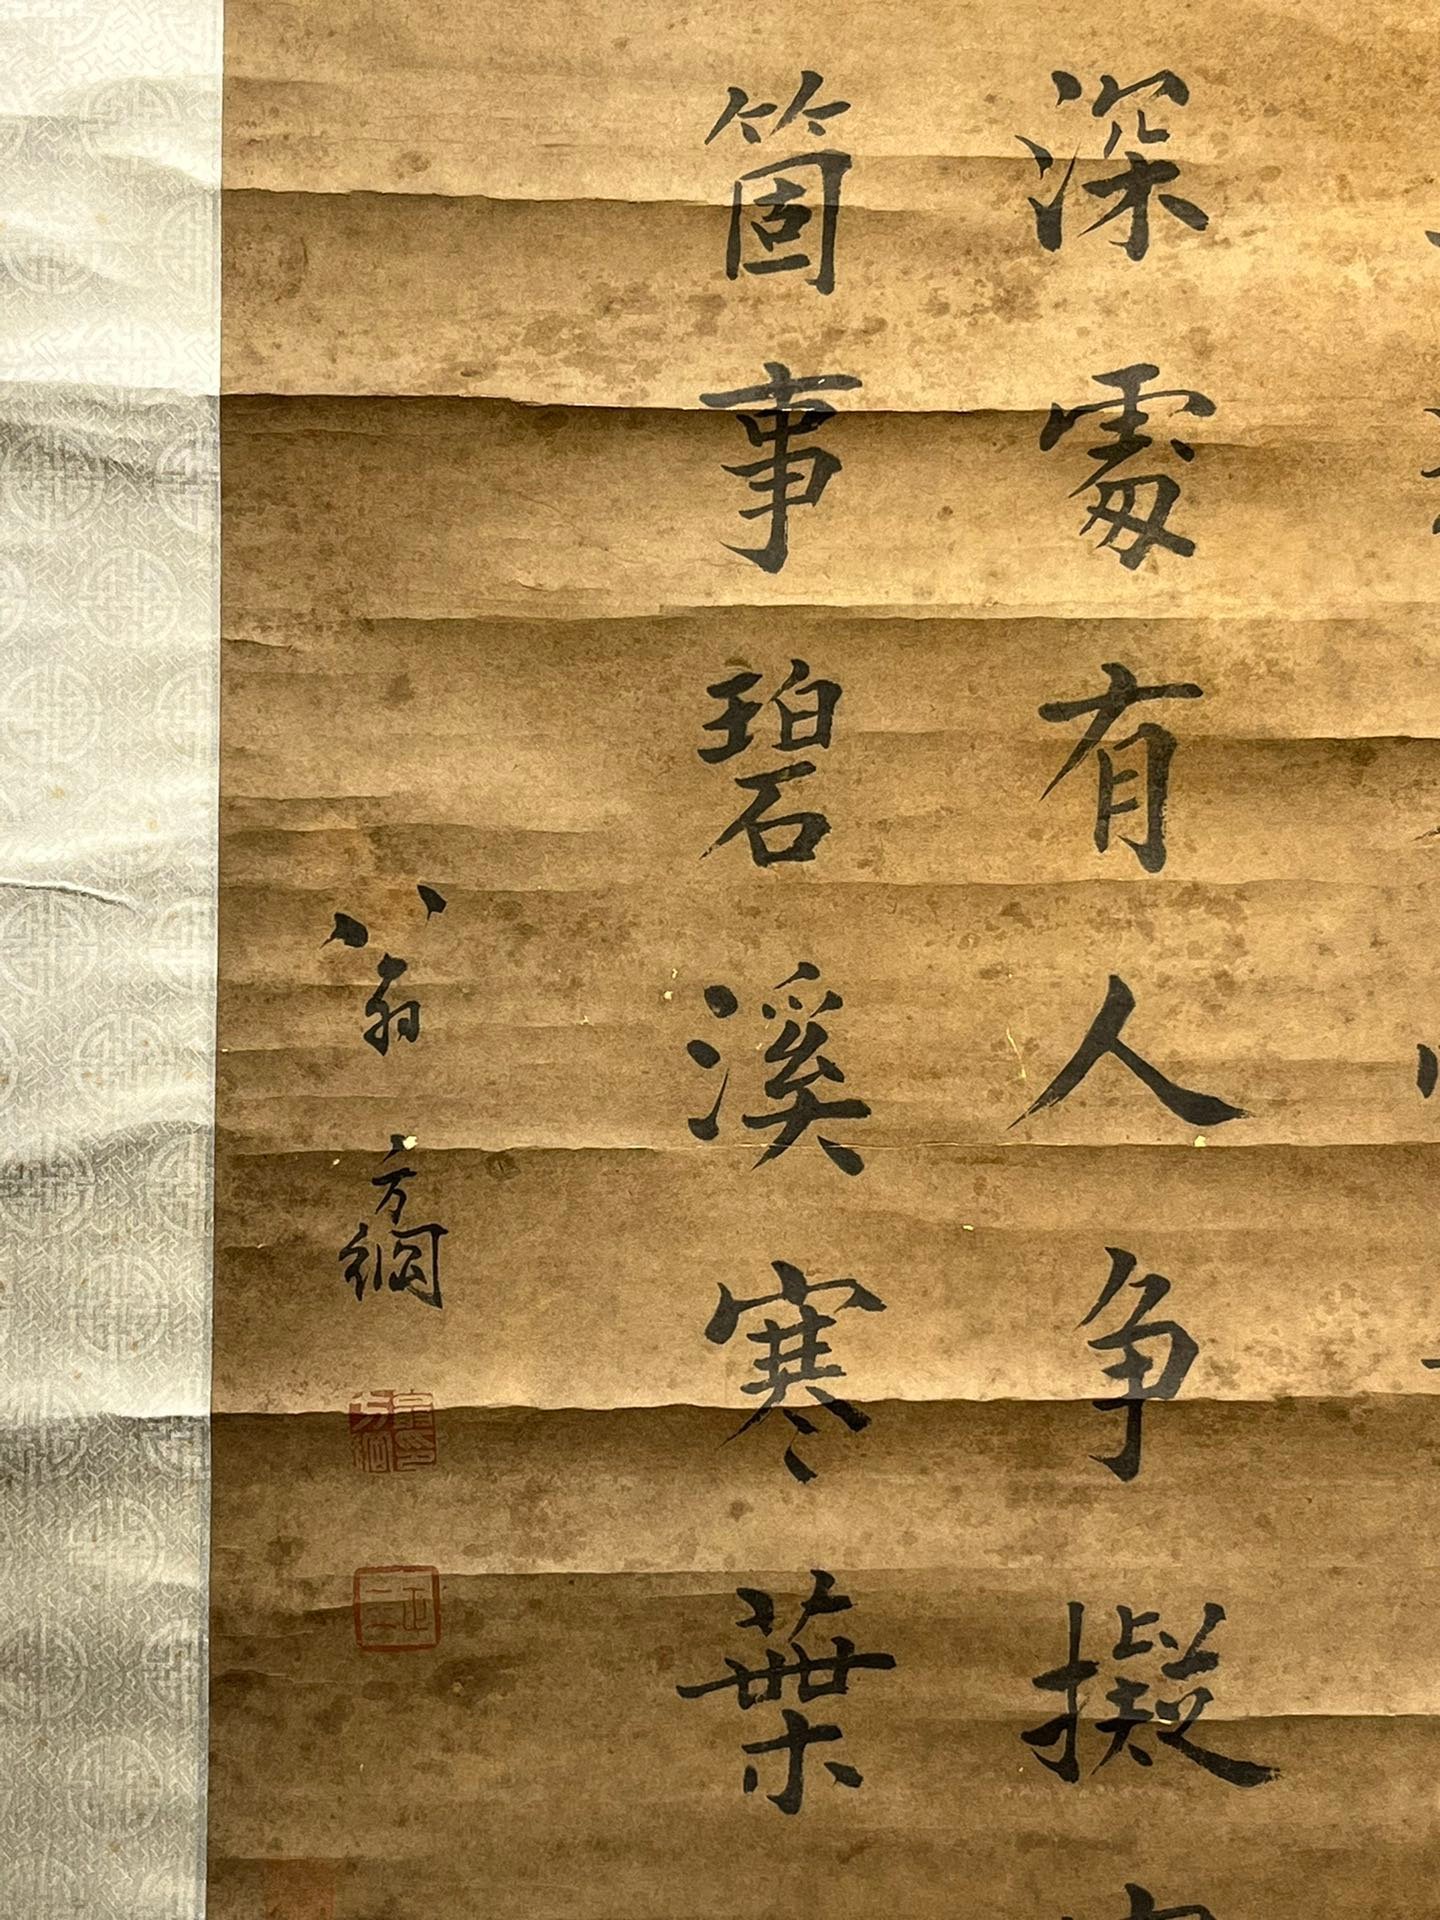 深處有人爭擬
箇事碧溪寒葉
翁方綱